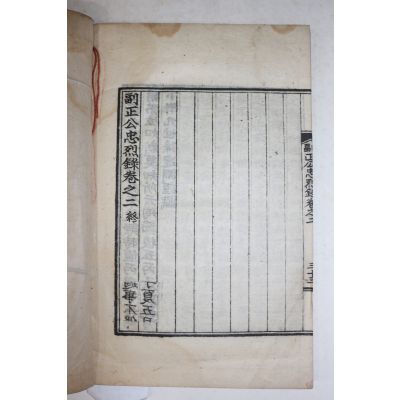 副正公忠烈錄卷之二
三十三
副正公忠烈錄卷之二 終
夏五日